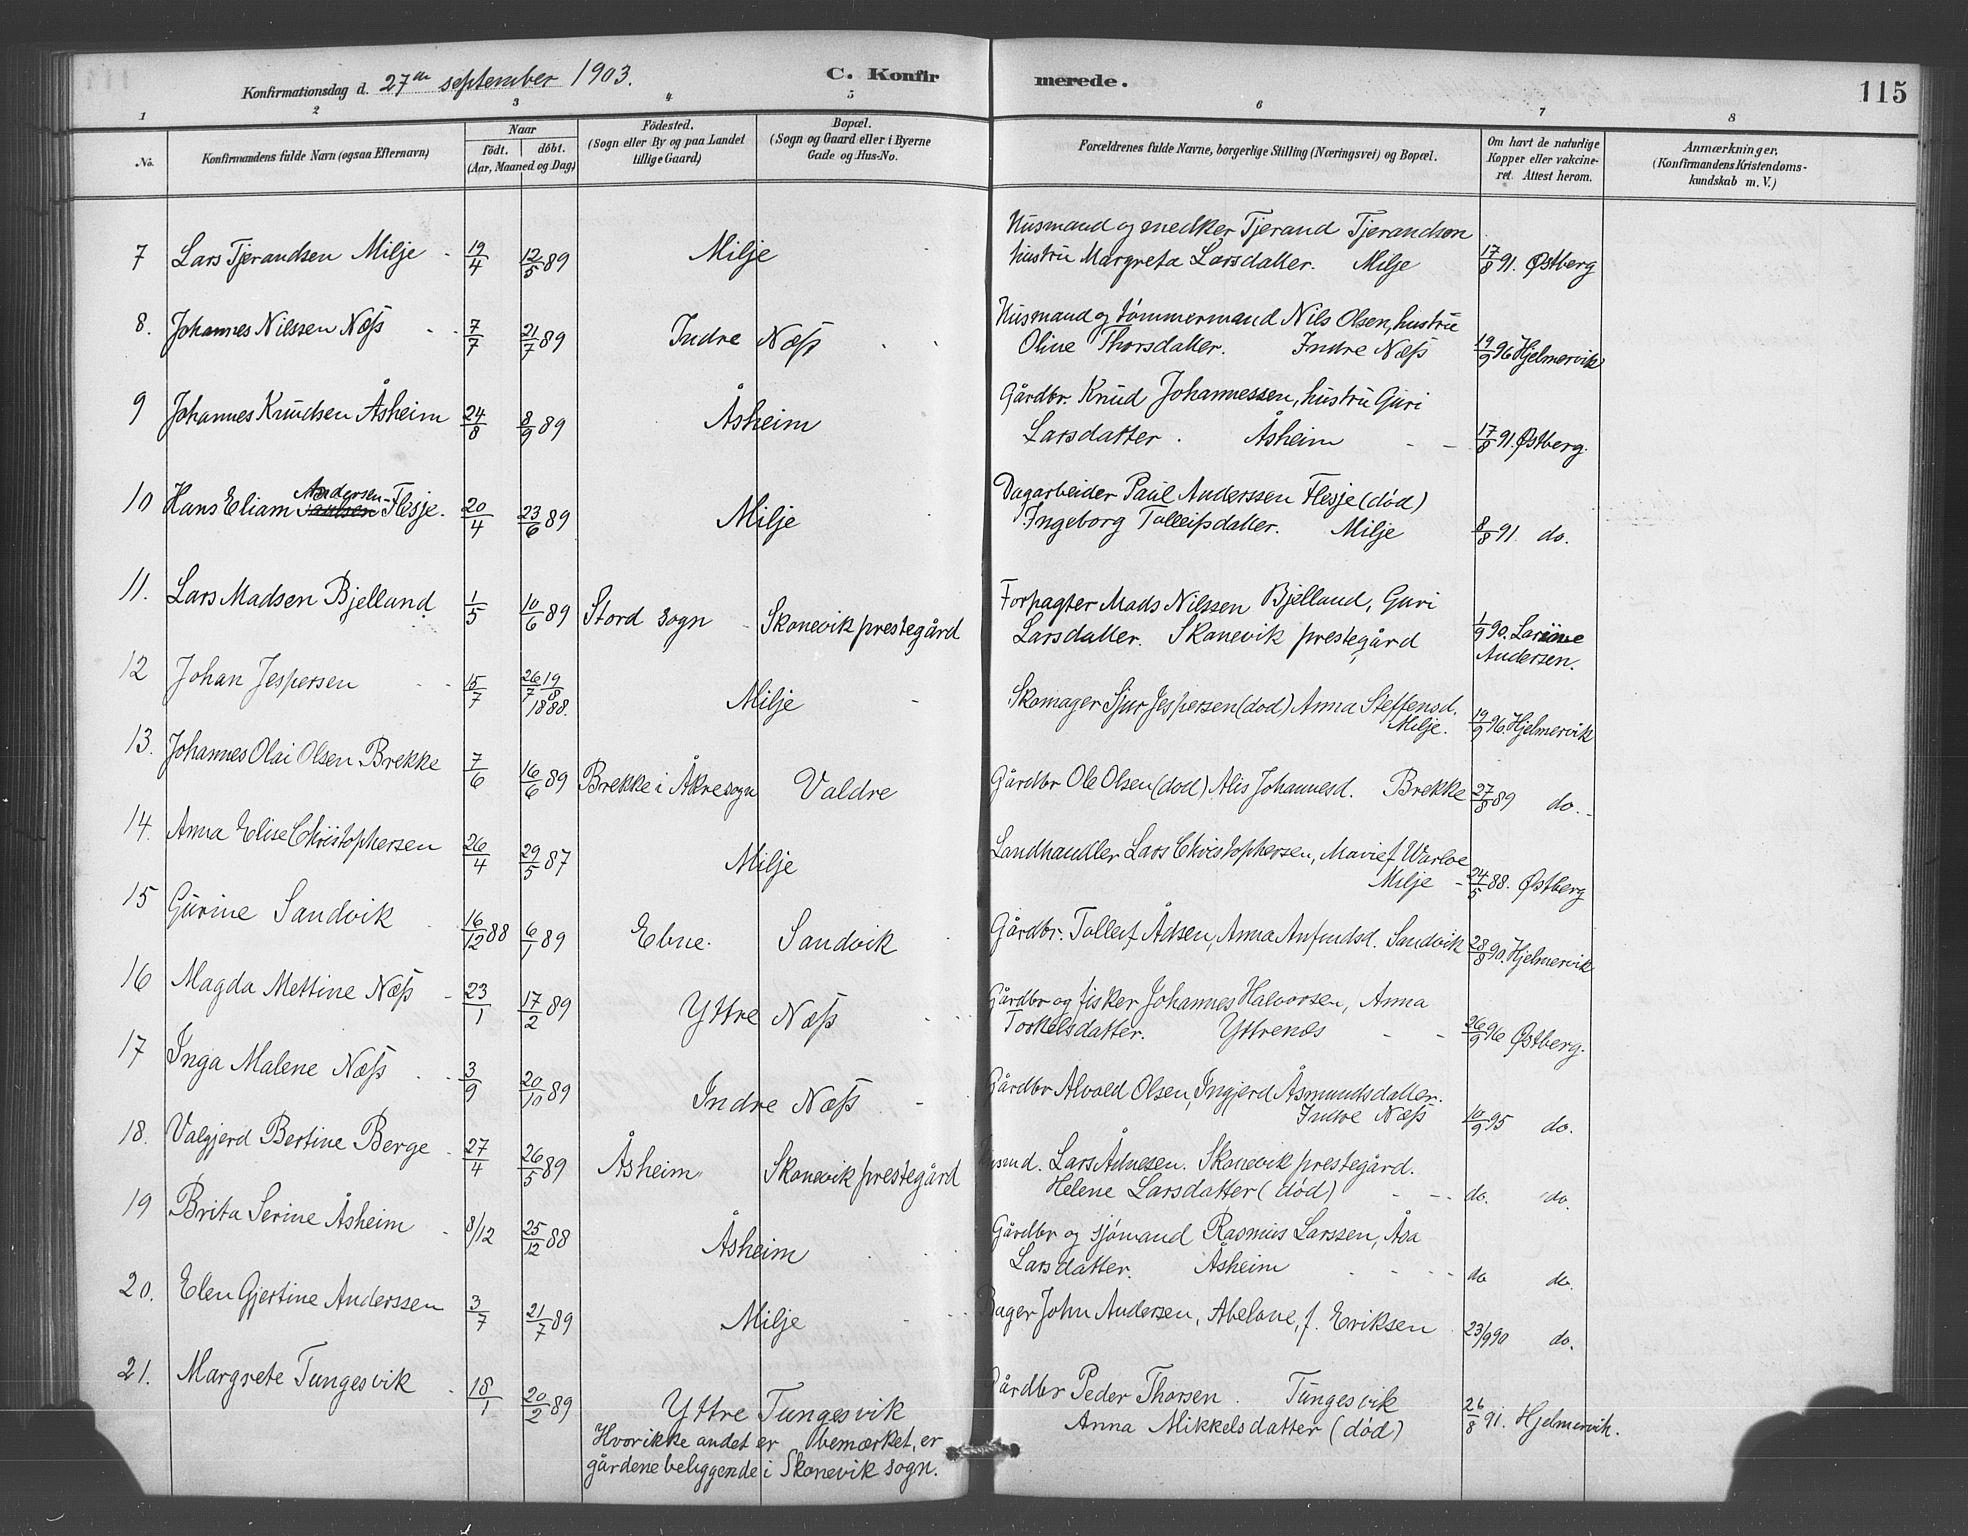 Konfirmationsdag d. 27de september 1903.
C. Konfir merede.
115
1 2 3 4 5 6 7 8
No.
Konfirmandens fulde Navn (ogsaa Efternavn)
Naar
født. døbt.
(Aar, Maaned og Dag)
Fødested.
(Sogn eller By og paa Landet
tillige Gaard)
Bopæl.
(Sogn og Gaard eller i Byerne
Gade og Hus-No.
Forældrenes fulde Navne, borgerlige Stilling (Næringsvei) og Bopæl.
Om havt de naturlige
Kopper eller vakcine-
ret. Attest herom.
Anmærkninger,
(Konfirmandens Kristendoms-
kundskab m. V.)
7 Lars Tjerandsen Milje 19/4 12/5 89 Milje
Husmand og snedker Tjerand Tjerandsen
hustru Margreta Larsdatter. Milje 17/8 91. Østberg
8. Johannes Nilssen Næss 7/7 21/7 89 Indre Næss
Husmand og tømmermand Nils Olsen, hustru
Oline Thorsdatter. Indre Næss 19/9 96 Hjelmervik
9 Johannes Knudsen Åsheim 24/8 8/9 89 Åsheim
Gårdbr. Knud Johannessen, hustru Guri
Larsdatter. Åsheim 17/8 91. Østberg.
10 Hans Eliam Paulsen Andersen Flesje. 20/4 23/6 89 Milje
Dagarbeider Paul Anderssen Flesje (död)
Ingeborg Tolleifsdatter. Milje 8/8 91. do.
11. Lars Madsen Bjelland 1/5 10/6 89 Stord sogn Skonevik prestegård
Forpagter Mads Nilssen Bjelland, Guri
Larsdatter. Skonevik prestegård 1/9 90. Larine
Andersen.
12 Johan Jespersen 15/7 26/7 19/8 1888. Milje
Skomager Sjur Jespersen (död) Anna Steffensd.
Milje. 19/9 96. Hjelmervik
13. Johannes Olai Olsen Brekke 7/6 16/6 89 Brekke i Åkresogn Valdre
Gårdbr Ole Olsen (död) Alis Johannesd. Brekke 27/8 89 do.
14. Anna Elise Christophersen 26/4 29/5 87 Milje
Landhandler Lars Christophersen, Marie f. Warloe
Milje 24/5 88. Østberg
15 Gurine Sandvik 16/12 88 6/1 89 Ebne. Sandvik
Gårdbr. Tolleif Ådsen, Anna Anfindsd. Sandvik 28/8 90. Hjelmervik
16 Magda Mettine Næss 23/1 17/2 89 Yttre Næss
Gårdbr og fisker Johannes Halvorsen, Anna
Torkelsdatter. Yttrenæs 26/9 96 Østberg.
17 Inga Malene Næss 3/9 20/10 89 Indre Næss
Gårdbr Alvald Olsen, Ingjerd Åsmundsdatter.
Indre Næss 10/9 95 do.
18. Valgjerd Bertine Berge 27/4 26/5 89 Åsheim Skonevik prestegård
Lars Ådnesen. Skonevik prestegård.
Helene Larsdatter (död) do. do.
19 Brita Serine Åsheim 8/12 25/12 88 Åsheim
Gårdbr og sjömand Rasmus Larssen, Åsa
Larsdatter. Åsheim do do.
20. Elen Gjertine Anderssen 3/7 21/7 89 Milje
Bager John Andersen, Abelone, f. Eriksen 23/9 90 do.
21. Margrete Tungesvik 18/1 20/2 89 Yttre Tungesvik
Gårdbr Peder Thorsen. Tungesvik
Anna Mikkelsdatter (död) 26/8 91. Hjelmervik.
Hvor ikke andet er bemærket, er
gårdene beliggende i Skonevik sogn.